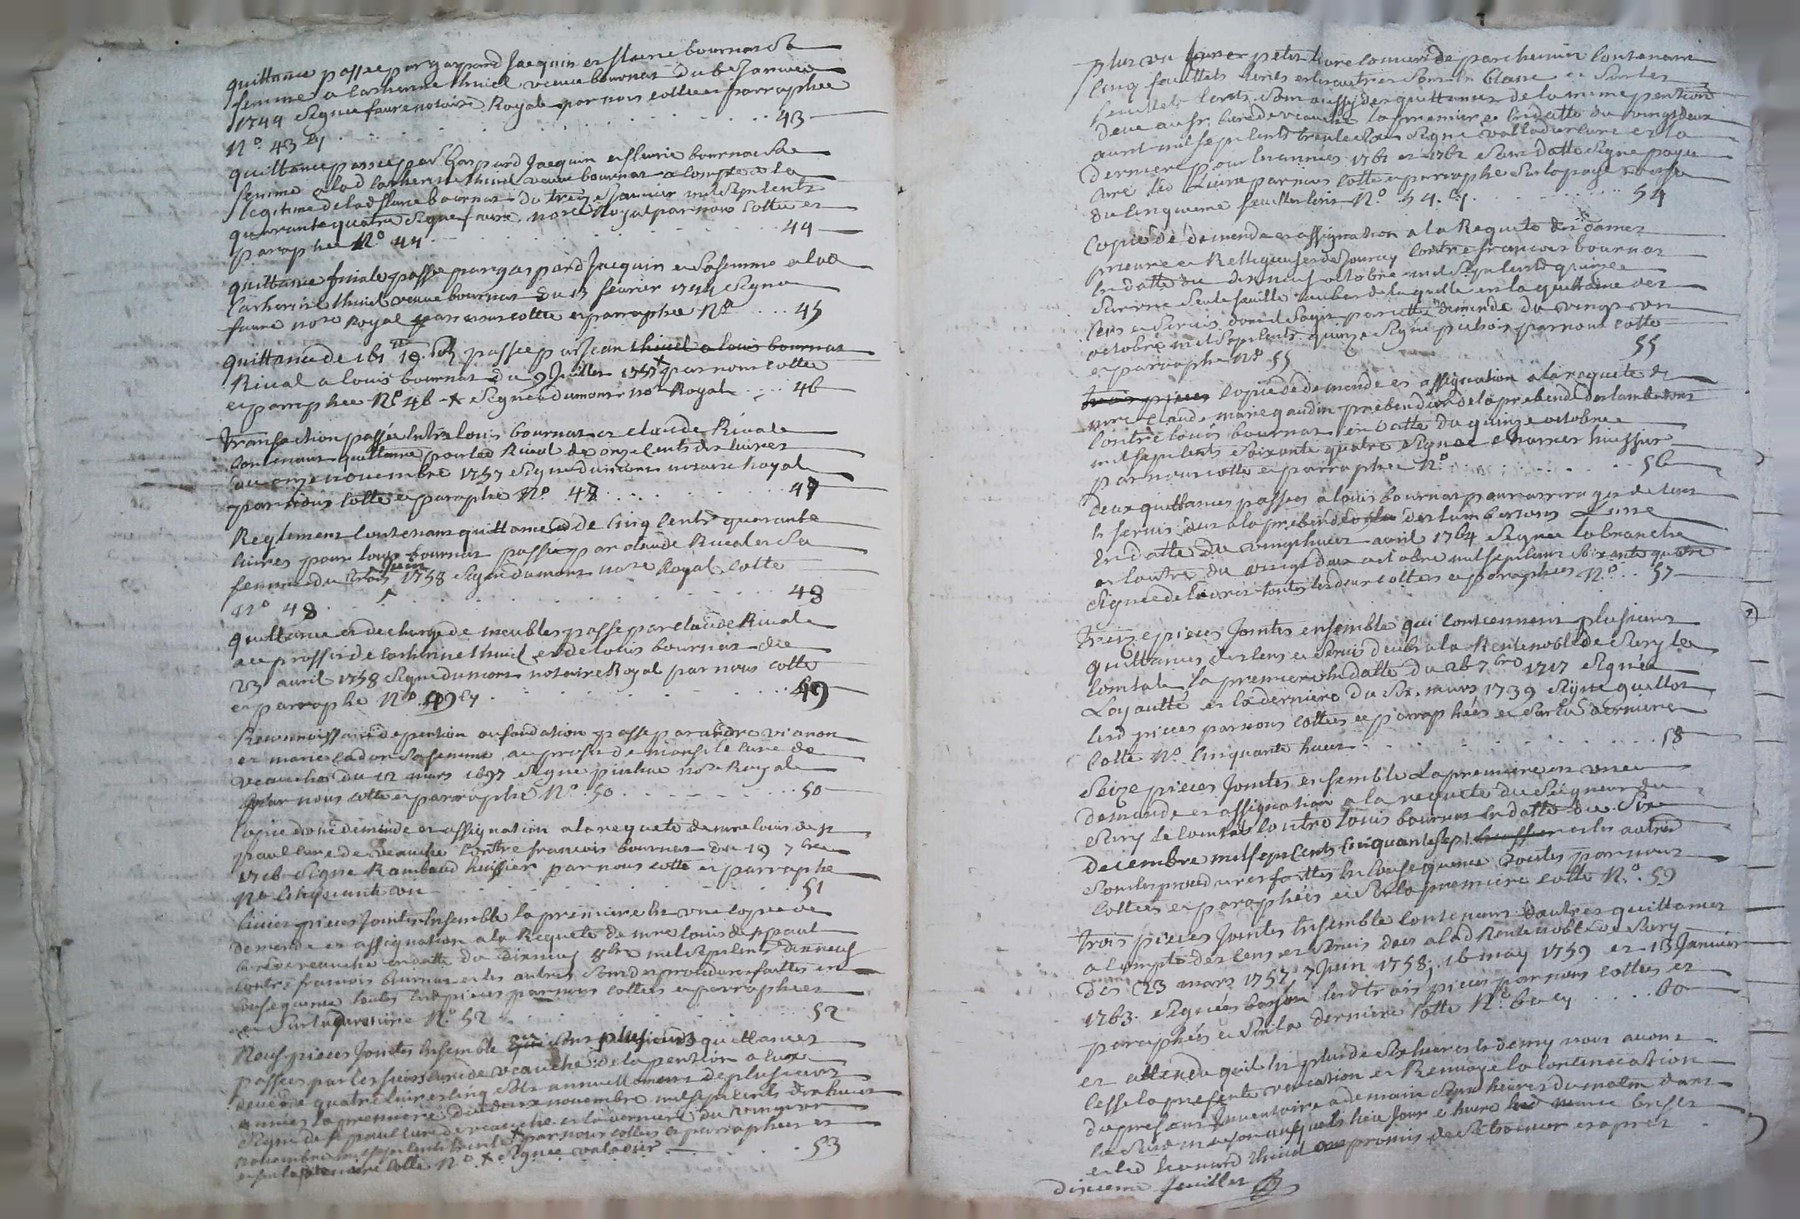 quittance passee par gaspard Jacquin et fleurie bournat sa
femme a Catherine thiuel veuve bournat du 6e Janvier
1744 signe faure notaire Royal par nous cottee et parraphee
N.o 43 cy . . . . . 43
quittance passee par Gaspard Jacquin et fleurie bournat sa
femme a lad Catherine thiuel veuve bournat a compte de la
legitime de lad fleurie bournat du treize Janvier mil sept cents
quarante quatre signe faure no.re Royal par nous cottee et
paraphee N.o 44 . . . . . 44
quittance finale passe par gaspard Jacquin et sa femme a lad
Catherine thiuel veuve bournat du 13 fevrier 1744 signe
faure no.re Royal par nous cottee et parraphee N.o . . . 45
quittance de 161 passee par Jean thiuel a louis bournat
Rival a louis bournat du 9 Juillet 1757 par nous cottee
et parraphee N.o 46 x signe dumont no.re Royal . . . 46
transaction passée entre louis bournat et claude Rivale
contenant quittance pour led Rival de onze cents dix livres
du onze novembre 1757 signe dumont notaire Royal
par nous cottee et paraphe N.o 47 . . . 47
Reglement contenant quittance de cinq cents quarante
livres pour louis bournat passee par claude Rival et sa
femme du trois Juin 1758 signe dumont no.re Royal cotte
N.o 48 . . . . . 48
quittance et decharge de meubles passe par claude Rivale
au proffit de Catherine thiuel et de louis bournat du
23 avril 1758 signe dumont notaire Royal par nous cotte
et parraphe N.o 49 cy . . . . 49
Reconnoissance de pention ou fondation passe par andre vianon
et marie cadon sa femme au profit de monsr le cure de
veauche du 12 mars 1697 signe no.re Royale
par nous cotte et parraphe N.o 50 . . . . 50
Copie d'une demande et assignation a la requete de mre louis de st
paul cure de veauche contre francois bournat du 19 7bre
1716 signe Rambaud huissier par nous cotte et parraphe
N.o Cinquante un . . . . 51
pieces Jointes Ensemble la premiere est une copie de
demande et assignation a la Requete de mre louis de st paul
cure de veauche en datte du dixneuf 8bre mil sept cents dixneuf
contre francois bournat et les autres sont des procedures faittes en
consequence toutes lesd pieces par nous cottees et parraphees
et sur la premiere N.o 52 . . . . 52
Neuf pieces Jointes Ensemble qui sont plusieurs quittances
passees par les sieurs cure de veauche de la pension a eux
deue de quatre livres cinq sols annuellement de plusieurs
annees la premiere du deux novembre mil sept cents dix huit
signe de st paul cure de veauche et la derniere du vingt un
novembre mil sept cents trente x par nous cottees et parraphees et
sur la premiere cotte N.o x signee valadier . . . 53
plus un petit livre couvert de parchemin contenant
cinq feuillets ecrits et les autres sont en blanc et sur les
feuillets ecrits sont aussy des quittances de la mème pention
deue au sr cure de veauche la premiere en datte du vingt deux
aoust mil sept cents trente six signe valladier cure et la
derniere pour les annees 1761 et 1762 sans datte signe page
cure led Livre par nous cotte et parraphe sur la page verso
du cinquieme feuillet ecrit N.o 54 cy . . . . 54
Copie de demande et assignation a la Requete des dames
prieure et Religieuses de Jourcey contre francois bournat
en datte du dix neuf octobre mil sept cents quinze
sur une seule feuille au bas de laquelle est la quittance des
cens et servis dont il s'agit par cette demande du vingt un
octobre mil sept cents quinze signe par nous cotte
et parraphe N.o 55 . . . . 55
trois pieces Copie de demande et assignation a la requete de
mre claude marie gaudin prebendier de la prebende des lambertons
contre louis bournat en datte du quinze octobre
mil sept cents soixante quatre signee charrier huissier
par nous cotte et parraphe N.o . . . . 56
deux quittances passees a louis bournat pour arrerages de cens
et servis deus a la prebende des lambertons L'une
en datte du vingt huit avril 1764 signee labranche
et l'autre du vingt deux octobre mil sept cent soixante quatre
signee toutes les deux cottees et parraphees N.o . . 57
treize pieces Jointes ensemble qui contiennent plusieurs
quittances des cens et servis deubs a la Rente noble de Sury le
Comtal la premiere en datte du 26 7bre 1717 signée
Loyautté et la derniere du six mars 1739 signe quillot
lesd pieces par nous cottees et parraphées et sur la derniere
cotte N.o Cinquante huit . . . . 58
Seize pieces Jointes ensemble La premiere est une
demande et assignation a la requete du seigneur du
Sury le comtal contre louis bournat en datte du six
decembre mil sept cents cinquante sept et les autres
sont les procedures faittes en consequence toutes par nous
cottees et paraphées et sur la premiere cotte N.o 59
trois pieces Jointes Ensemble contenant d'autres quittances
a compte des cens et servis deus a lad Rente noble de Sury
des (23 mars 1757, 7 Juin 1758, 16 may 1759 et 13 Janvier
1763. signées lesd trois pieces par nous cottees et
paraphés et sur la derniere cotte N.o 60 cy . . . . 60
et attendu qu'il est plus de six heures et demy nous avons
cessé la presente vacation et Renvoyé la continuation
du present Inventaire a demain sept heures du matin dans
la susd maison auxquels lieu Jour et heure led veuve bournat
et led leonard thiuel ont promis de se trouver et apres
dixieme feuillet